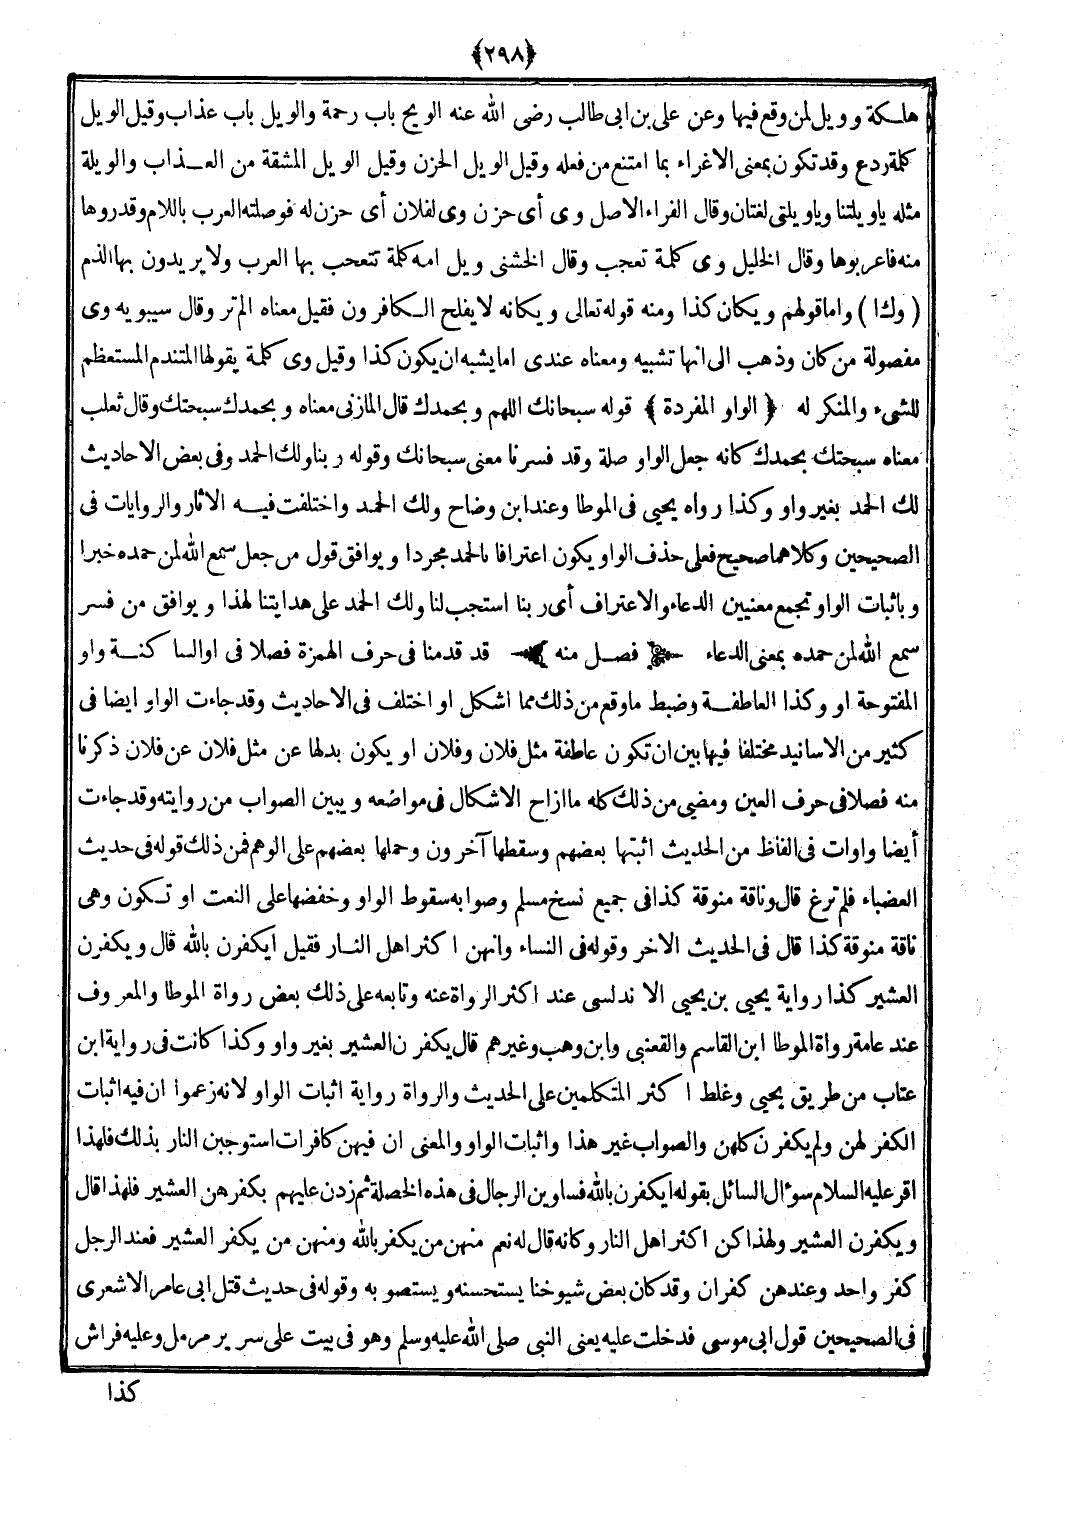 ﴿٢٩٨﴾
هلكة وويل لمن وقع فيها وعن على بن ابى طالب رضى الله عنه الويح باب رحمة والويل باب عذاب وقيل الويل
كلمة ردع وقد تكون بمعنى الاغراء بما امتنع من فعله وقيل الويل الحزن وقيل الويل المشقة من العذاب والويلة
مثله ياويلتنا وياويلتى لغتان وقال الفراء الاصل وى أى حزن وى لفلان أى حزن له فوصلته العرب باللام وقدروها
منه فاعربوها وقال الخليل وى كلمة تعجب وقال الخشنى ويل امه كلمة تتعحب بها العرب ولا يريدون بها الذم
(وك ا) واما قولهم ويكان كذا ومنه قوله تعالى ويكانه لا يفلح الكافرون فقيل معناه الم تر وقال سيبويه وى
مفصولة من كان وذهب الى انها تشبيه ومعناه عندى اما يشبه ان يكون كذا وقيل وى كلمة يقولها المتندم المستعظم
للشىء والمنكر له ﴿الواو المفردة﴾ قوله سبحانك اللهم وبحمدك قال المازنى معناه وبحمدك سبحتك وقال ثعلب
معناه سبحتك بحمدك كانه جعل الواو صلة وقد فسرنا معنى سبحانك وقوله ربنا ولك الحمد وفى بعض الاحاديث
لك الحمد بغير واو وكذا رواه يحيى فى الموطا وعند ابن وضاح ولك الحمد واختلفت فيه الاثار والروايات فى
الصحيحين وكلاهما صحيح فعلى حذف الواو يكون اعترافا بالحمد مجردا ويوافق قول من جعل سمع الله لمن حمده خبرا
وباثبات الواو تجمع معنيين الدعاء والاعتراف أى ربنا استجب لنا ولك الحمد على هدايتنا لهذا ويوافق من فسر
سمع الله لمن حمده بمعنى الدعاء فصل منه قد قدمنا فى حرف الهمزة فصلا فى او الساكنة واو
المفتوحة او وكذا العاطفة وضبط ما وقع من ذلك مما اشكل او اختلف فى الاحاديث وقد جاءت الواو ايضا فى
كثير من الاسانيد مختلفا فيها بين ان تكون عاطفة مثل فلان وفلان او يكون بدلها عن مثل فلان عن فلان ذكرنا
منه فصلا فى حرف العين ومضى من ذلك كله ما ازاح الاشكال فى مواضعه ويبين الصواب من روايته وقد جاءت
أيضا واوات فى الفاظ من الحديث اثبتها بعضهم وسقطها آخرون وحملها بعضهم على الوهم فمن ذلك قوله فى حديث
العضباء فلم ترغ قال وناقة منوقة كذا فى جميع نسخ مسلم وصوابه سقوط الواو وخفضها على النعت او تكون وهى
ناقة منوقة كذا قال فى الحديث الاخر وقوله فى النساء وانهن اكثر اهل النار فقيل ايكفرن بالله قال ويكفرن
العشير كذا رواية يحيى بن يحيى الاندلسى عند اكثر الرواة عنه وتابعه على ذلك بعض رواة الموطا والمعروف
عند عامة رواة الموطا ابن القاسم والقعنبى وابن وهب وغيرهم قال يكفرن العشير بغير واو وكذا كانت فى رواية ابن
عتاب من طريق يحيى وغلط اكثر المتكلمين على الحديث والرواة رواية اثبات الواو لانه زعموا ان فيه اثبات
الكفر لهن ولم يكفرن كلهن والصواب غير هذا واثبات الواو والمعنى ان فيهن كافرات استوجبن النار بذلك فلهذا
اقر عليه السلام سوال السائل بقوله ايكفرن بالله فساوين الرجال فى هذه الخصلة ثم زدن عليهم بكفرهن العشير فلهذا قال
ويكفرن العشير ولهذا كن اكثر اهل النار وكانه قال له نعم منهن من يكفر بالله ومنهن من يكفر العشير فعند الرجل
كفر واحد وعندهن كفران وقد كان بعض شيوخنا يستحسنه ويستصوبه وقوله فى حديث قتل ابى عامر الاشعرى
فى الصحيحين قول ابى موسى فدخلت عليه يعنى النبى صلى الله عليه وسلم وهو فى بيت على سرير مرمل وعليه فراش
كذا